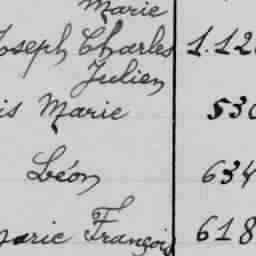 Marie
Joseph Charles 1.12
Julien
is Marie 530
Léon 634
Marie François 618